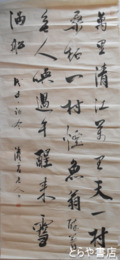 萬里清江万里天一村
桑柘一村煙漁翁醉著
無人喚過午醒來雪
滿船
とらや書房